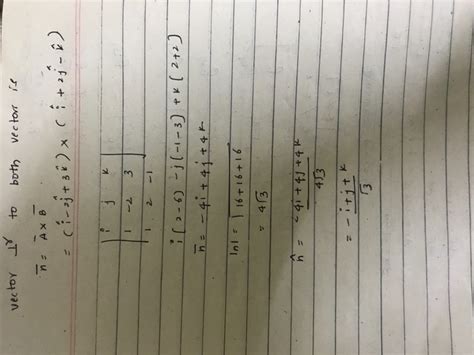 vector ⊥r to both vector is
n̄ = Ā × B̄
= (î - 2ĵ + 3k̂) × (î + 2ĵ - k̂)
| î j k |
| 1 -2 3 |
| 1 2 -1 |
i(2-6) - j(-1-3) + k(2+2)
n̄ = -4i + 4j + 4k
|n| = √16+16+16
= 4√3
n̂ = -4i + 4j + 4k
4√3
= -i + j + k
√3